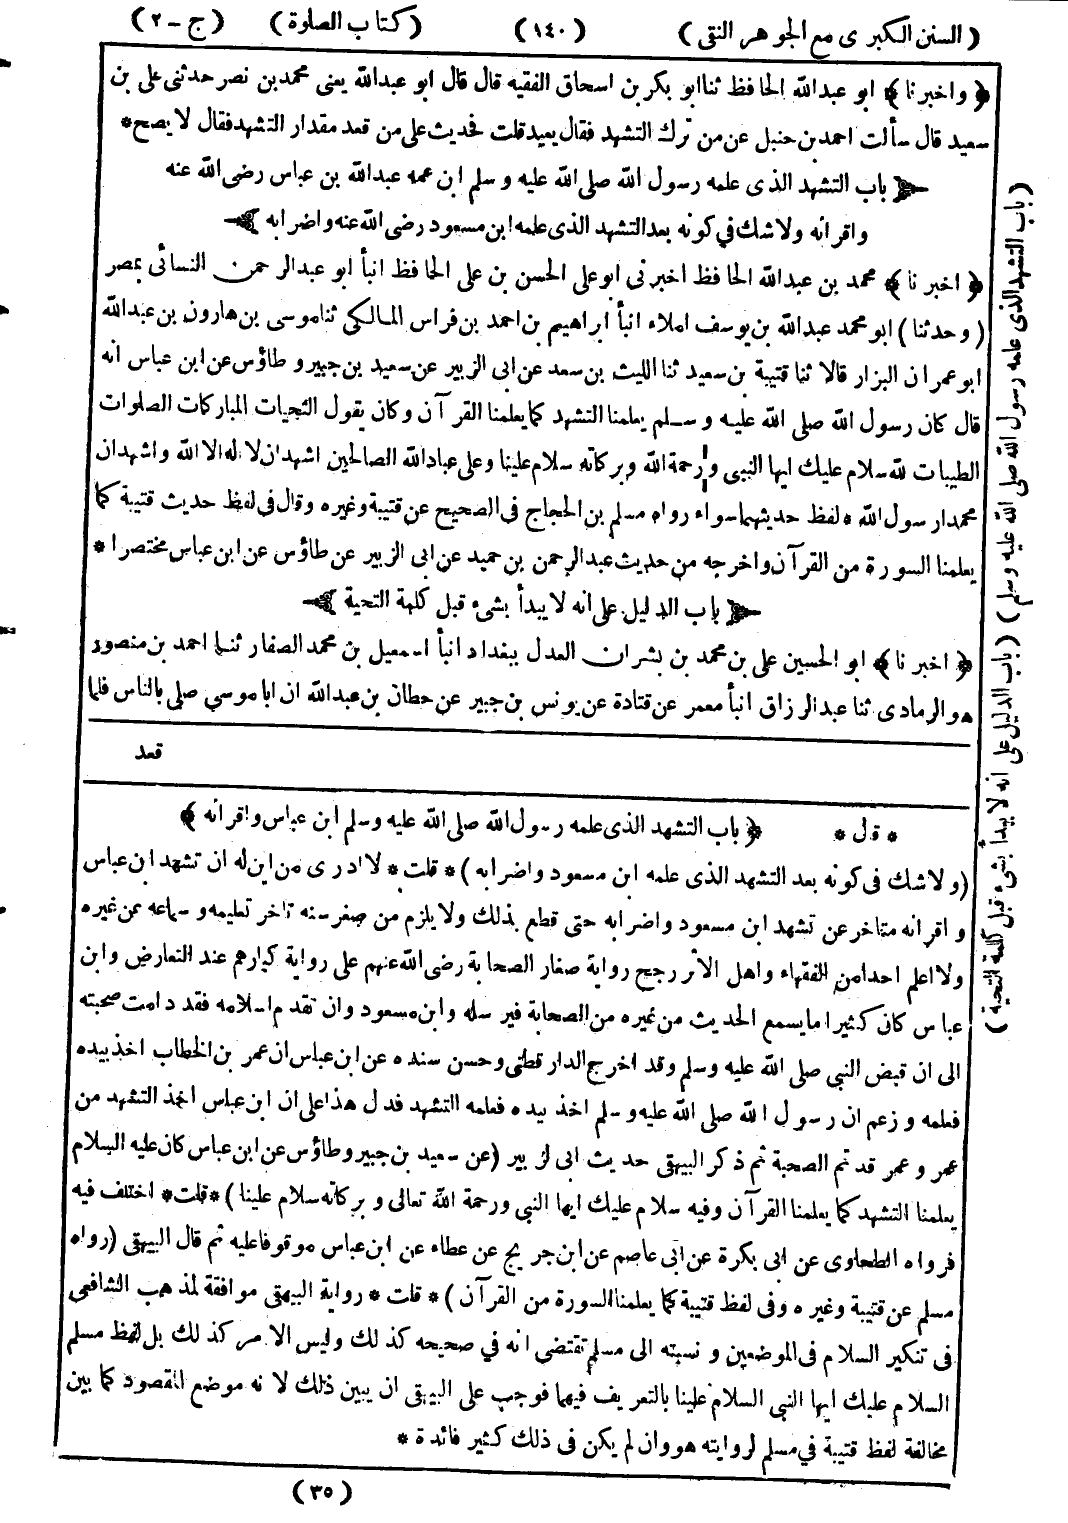 ( السنن الكبرى مع الجوهر النقى ) ( ١٤٠ ) ( كتاب الصلوة ) ( ج - ٢ )
﴿ واخبرنا ﴾ ابو عبدالله الحافظ ثنا ابو بكر بن اسحاق الفقيه قال قال ابو عبدالله يعنى محمد بن نصر حدثنى على بن
سعيد قال سألت احمد بن حنبل عن من ترك التشهد فقال يعيد قلت فحديث على من قعد مقدار التشهد فقال لا يصح *
باب التشهد الذى علمه رسول الله صلى الله عليه وسلم ابن عمه عبدالله بن عباس رضى الله عنه
واقرانه ولا شك في كونه بعد التشهد الذى علمه ابن مسعود رضى الله عنه واضرابه
﴿ اخبرنا ﴾ محمد بن عبدالله الحافظ اخبرنى ابو على الحسن بن على الحافظ انبأ ابو عبد الرحمن النسائى بمصر
( وحدثنا ) ابو محمد عبدالله بن يوسف املاء انبأ ابراهيم بن احمد بن فراس المالكى ثنا موسى بن هارون بن عبدالله
ابو عمران البزار قالا ثنا قتيبة بن سعيد ثنا الليث بن سعد عن ابى الزبير عن سعيد بن جبير وطاؤس عن ابن عباس انه
قال كان رسول الله صلى الله عليه وسلم يعلمنا التشهد كما يعلمنا القرآن وكان يقول التحيات المباركات الصلوات
الطيبات لله سلام عليك ايها النبى ورحمة الله وبركاته سلام علينا وعلى عباد الله الصالحين اشهد ان لا اله الا الله واشهد ان
محمدا رسول الله * لفظ حديثهما سواء رواه مسلم بن الحجاج فى الصحيح عن قتيبة وغيره وقال فى لفظ حديث قتيبة كما
يعلمنا السورة من القرآن واخرجه من حديث عبد الرحمن بن حميد عن ابى الزبير عن طاؤس عن ابن عباس مختصرا *
باب الدليل على انه لا يبدأ بشىء قبل كلمة التحية
﴿ اخبرنا ﴾ ابو الحسين على بن محمد بن بشران العدل ببغداد انبأ اسمعيل بن محمد الصفار ثنا احمد بن منصور
هو الرمادى ثنا عبد الرزاق انبأ معمر عن قتادة عن يونس بن جبير عن حطان بن عبدالله ان ابا موسى صلى بالناس فلما
قعد
* قال * ﴿ باب التشهد الذى علمه رسول الله صلى الله عليه وسلم ابن عباس واقرانه ﴾
( ولا شك فى كونه بعد التشهد الذى علمه ابن مسعود واضرابه ) * قلت * لا ادرى من اين له ان تشهد ابن عباس
واقرانه متاخر عن تشهد ابن مسعود واضرابه حتى قطع بذلك ولا يلزم من صغر سنه تاخر تعليمه وسماعه عمن غيره
ولا اعلم احدا من الفقهاء واهل الأثر رجح رواية صغار الصحابة رضى الله عنهم على رواية كبارهم عند التعارض وابن
عباس كان كثيرا ما يسمع الحديث من غيره من الصحابة فيرسله وابن مسعود وان تقدم اسلامه فقد دامت صحبته
الى ان قبض النبى صلى الله عليه وسلم وقد اخرج الدار قطنى وحسن سنده عن ابن عباس ان عمر بن الخطاب اخذ بيده
فعلمه وزعم ان رسول الله صلى الله عليه وسلم اخذ بيده فعلمه التشهد فدل هذا على ان ابن عباس اخذ التشهد من
عمر وعمر قديم الصحبة ثم ذكر البيهقى حديث ابى الزبير ( عن سعيد بن جبير وطاؤس عن ابن عباس كان عليه السلام
يعلمنا التشهد كما يعلمنا القرآن وفيه سلام عليك ايها النبى ورحمة الله تعالى وبركاته سلام علينا ) * قلت * اختلف فيه
فرواه الطحاوى عن ابى بكرة عن ابى عاصم عن ابن جريج عن عطاء عن ابن عباس موقوفا عليه ثم قال البيهقى ( رواه
مسلم عن قتيبة وغيره وفى لفظ قتيبة كما يعلمنا السورة من القرآن ) * قلت * رواية البيهقى موافقة لمذهب الشافعى
فى تنكير السلام فى الموضعين ونسبته الى مسلم تقتضى انه في صحيحه كذلك وليس الامر كذلك بل لفظ مسلم
السلام عليك ايها النبى السلام علينا بالتعريف فيهما فوجب على البيهقى ان يبين ذلك لانه موضع المقصود كما بين
مخالفة لفظ قتيبة في مسلم لروايته هو وان لم يكن فى ذلك كثير فائدة *
( ٣٥ )
( باب التشهد الذى علمه رسول الله صلى الله عليه وسلم ) ( باب الدليل على انه لا يبدأ بشىء قبل كلمة التحية )